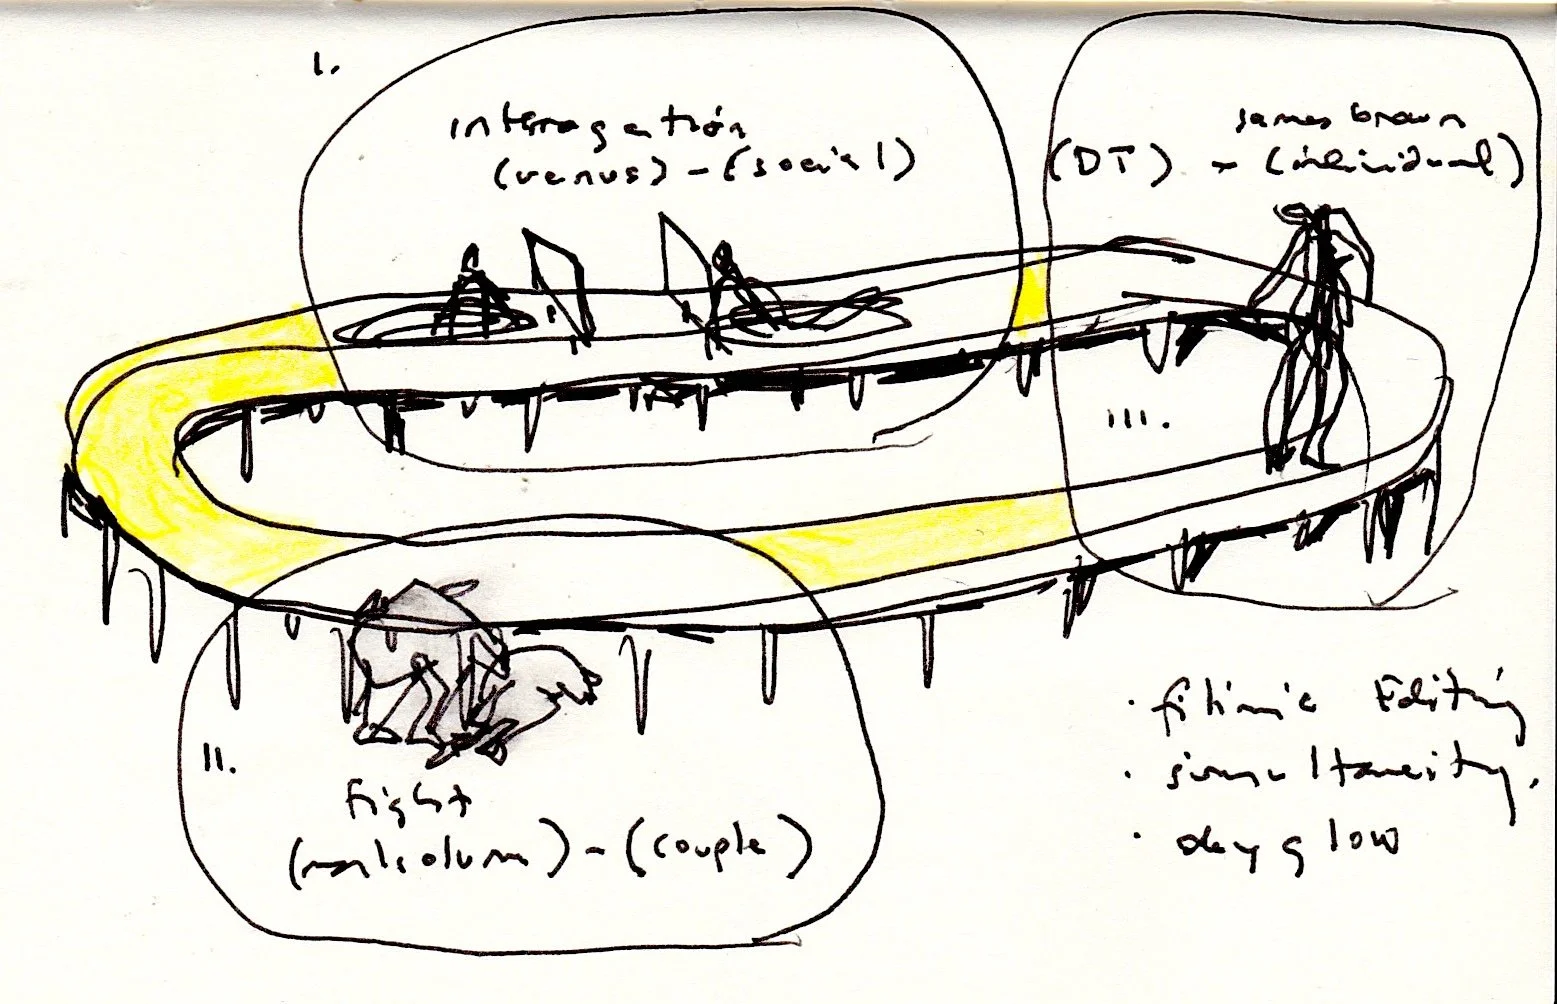 I.
interrogation
(venus) - (social)
james brown
(DT) - (individual)
III.
II.
fight
(malcolum) - (couple)
· filimic Editing
· simultaneity.
· dayglow